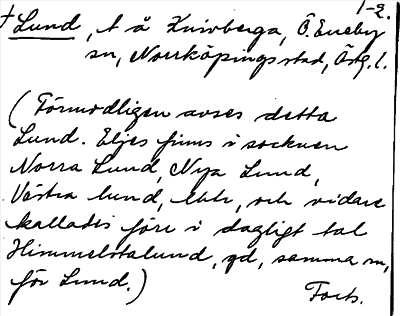 1-2.
† Lund, t å Knivberga, Ö. Eneby
sn, Norrköpings stad, Ög. l.
(Förmodligen avses detta
Lund. Eljes finns i socknen
Norra Lund, Nya Lund,
Västra lund, lhtr, och vidare
kallades förr i dagligt tal
Himmelstalund, gd, samma sn,
för Lund.)
Forts.